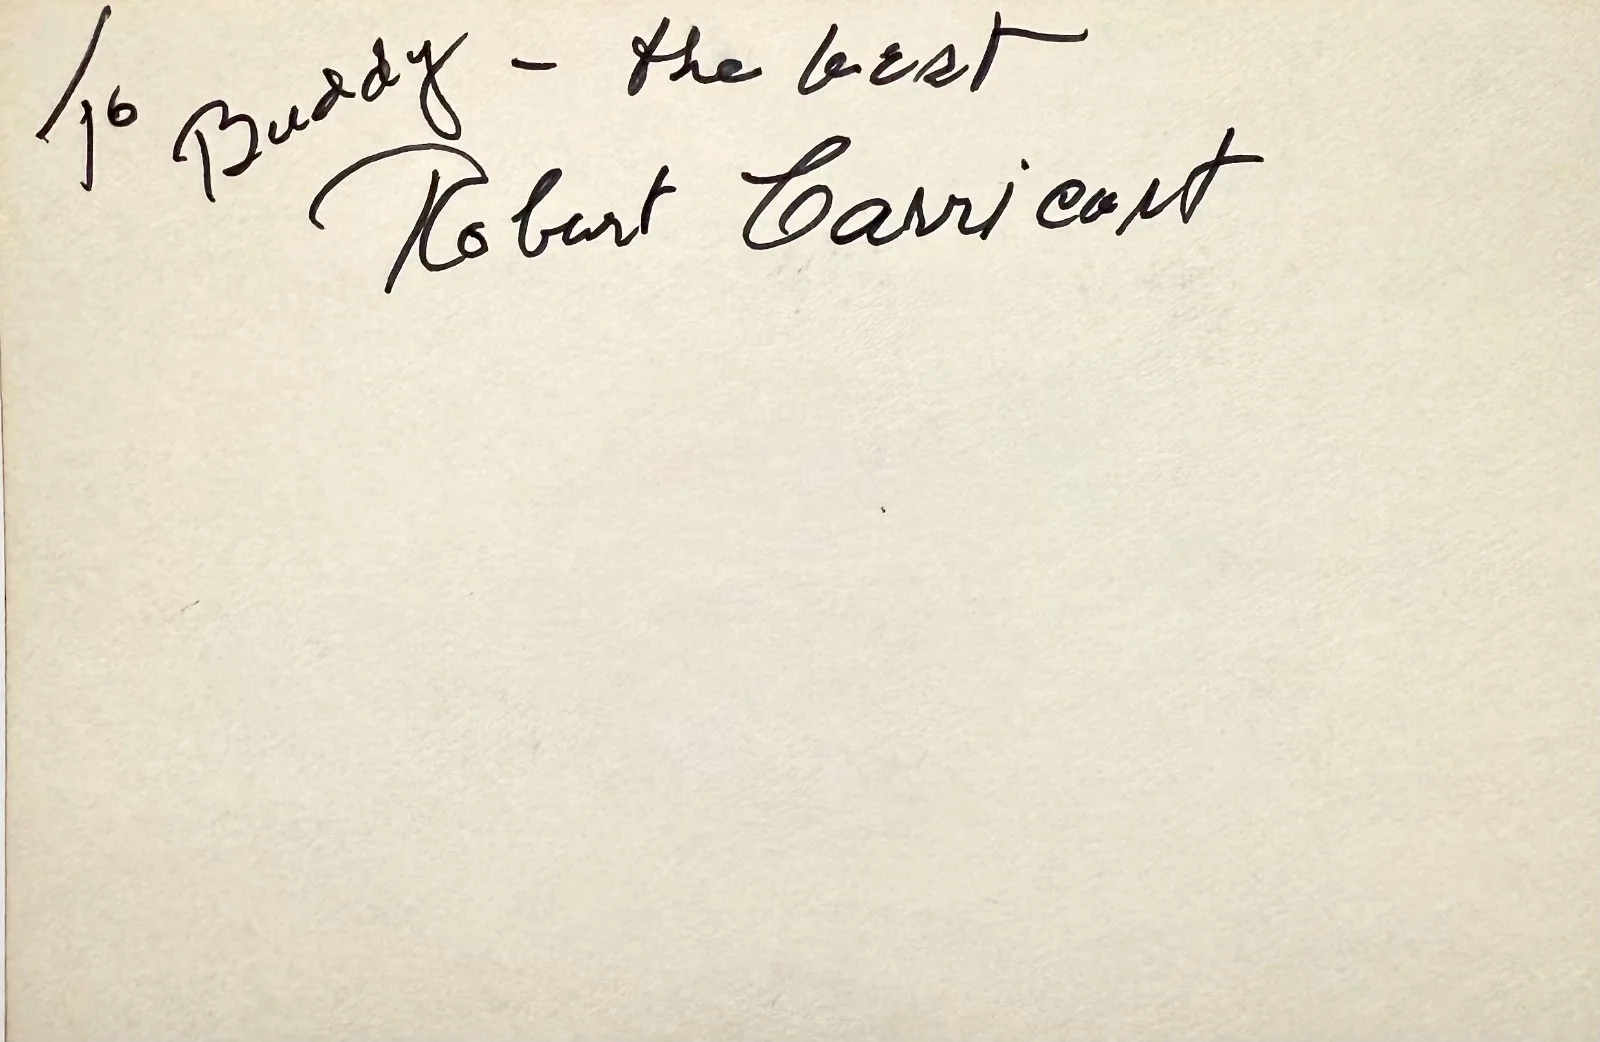 To Buddy - the best
Robert Carricart